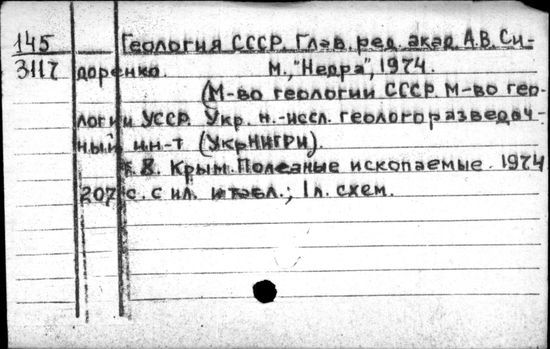 145 Геология СССР. Глав. ред. акад. А.В. Си-
3117 доренко. М., "Недра", 1974.
(М-во геологии СССР. М-во гео-
логии УССР. Укр. н.-иссл. геологоразведоч-
ный ин-т (УкрНИГРИ).
т. 8. Крым. Полезные ископаемые. 1974
207 с. с ил. и табл.; 1 л. схем.